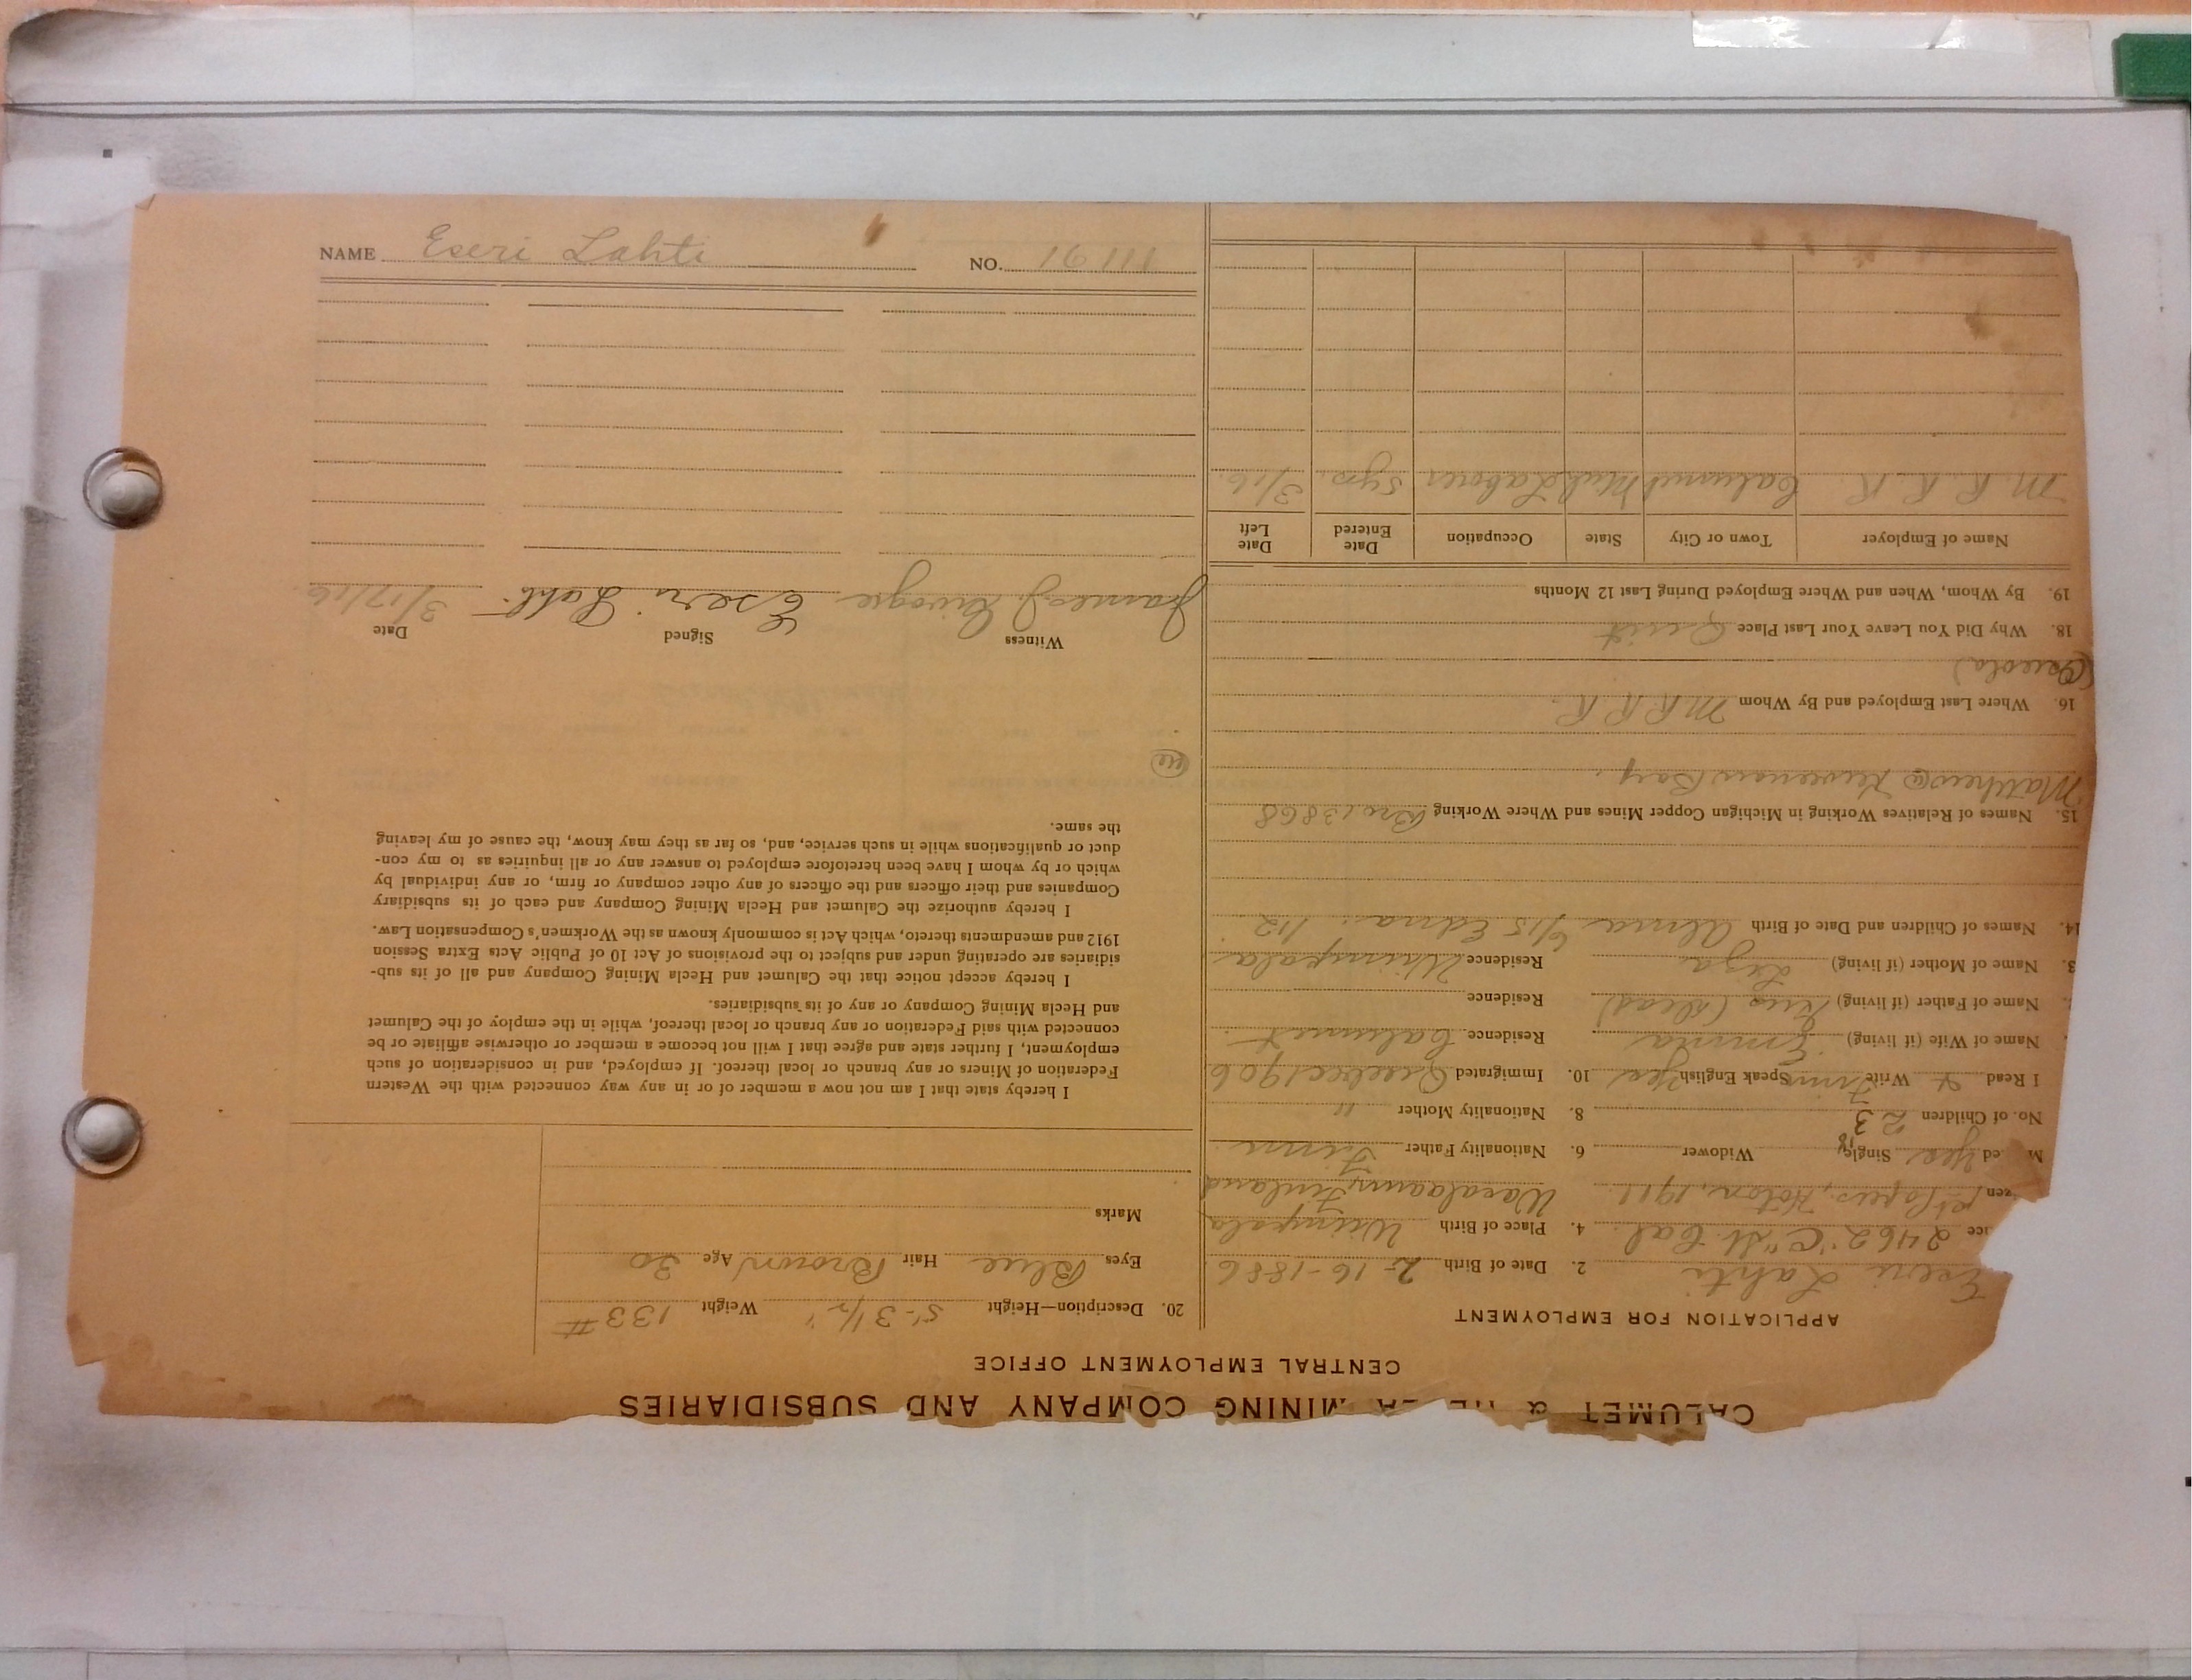 CALUMET & HECLA MINING COMPANY AND SUBSIDIARIES
CENTRAL EMPLOYMENT OFFICE
APPLICATION FOR EMPLOYMENT
Eseri Lahti 2. Date of Birth 2-16-1886
2462 "C" St. Cal. 4. Place of Birth Wiimpala
1st Papers, Hoton, 1911. Finland
Yes Single Widower 6. Nationality Father Finn
No. of Children 8. Nationality Mother "
I Read & Write Finn Speak English Yes 10. Immigrated Quebec 1906
Name of Wife (if living) Emma Residence Calumet.
Name of Father (if living) (dead) Residence
Name of Mother (if living) Liza Residence Wiimpala
14. Names of Children and Date of Birth Alma 6/15 Edna. 1/12
15. Names of Relatives Working in Michigan Copper Mines and Where Working Bro. 13868
Matthew Keweenaw Bay.
16. Where Last Employed and By Whom M. R. R. R.
(Osceola)
18. Why Did You Leave Your Last Place Quit
19. By Whom, When and Where Employed During Last 12 Months
Name of Employer Town or City State Occupation Date Entered Date Left
M. R. R. R. Calumet Mich Laborer 5yrs. 3/16.
20. Description—Height 5'-3 1/2" Weight 133 #
Eyes Blue Hair Brown Age 30
Marks
I hereby state that I am not now a member of or in any way connected with the Western
Federation of Miners or any branch or local thereof. If employed, and in consideration of such
employment, I further state and agree that I will not become a member or otherwise affiliate or be
connected with said Federation or any branch or local thereof, while in the employ of the Calumet
and Hecla Mining Company or any of its subsidiaries.
I hereby accept notice that the Calumet and Hecla Mining Company and all of its sub-
sidiaries are operating under and subject to the provisions of Act 10 of Public Acts Extra Session
1912 and amendments thereto, which Act is commonly known as the Workmen's Compensation Law.
I hereby authorize the Calumet and Hecla Mining Company and each of its subsidiary
Companies and their officers and the officers of any other company or firm, or any individual by
which or by whom I have been heretofore employed to answer any or all inquiries as to my con-
duct or qualifications while in such service, and, so far as they may know, the cause of my leaving
the same.
Witness Signed Date
James J. Eseri Lahti 3/17/16
NAME Eseri Lahti NO. 16111